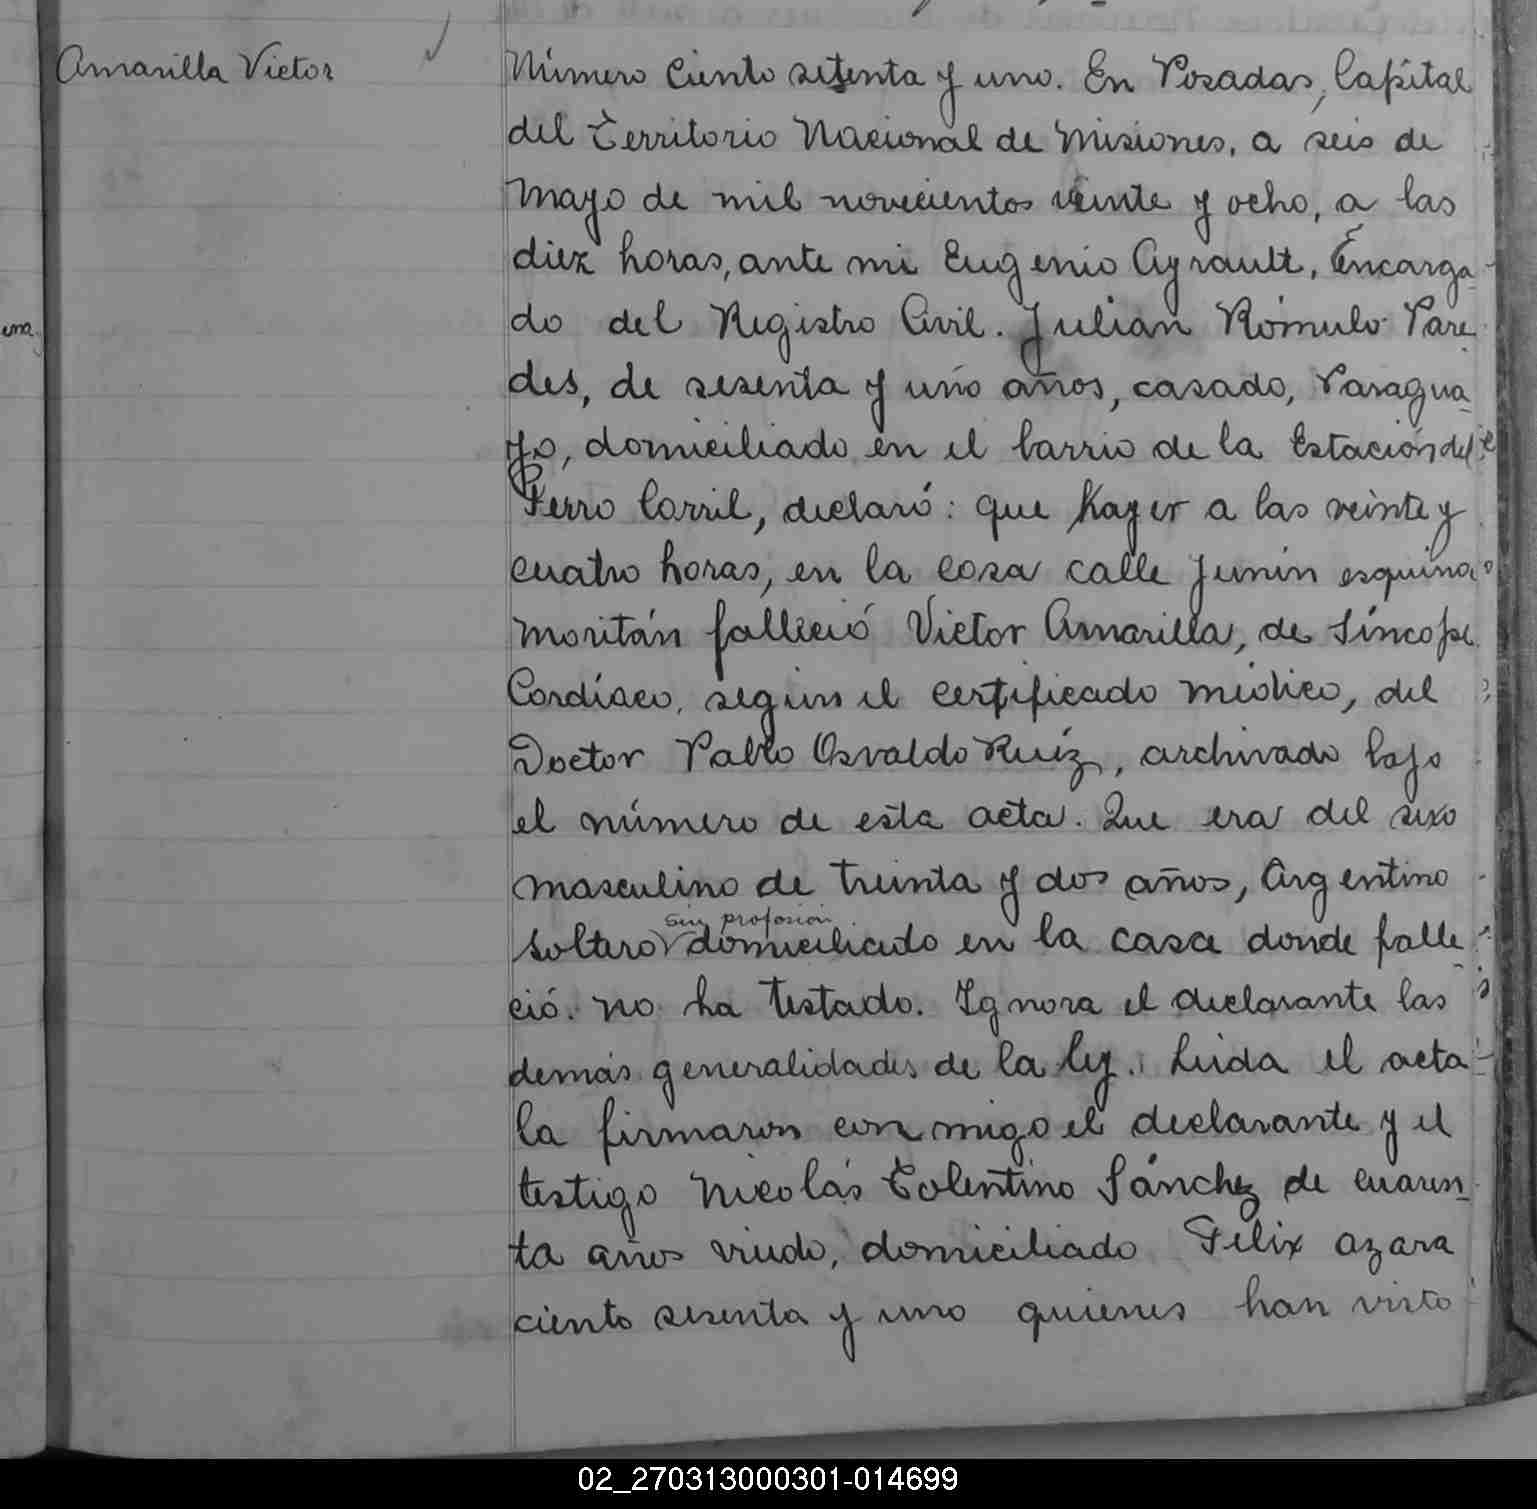 Amarilla Victor
Número Ciento setenta y uno. En Posadas, Capital
del Territorio Nacional de Misiones, a seis de
Mayo de mil novecientos veinte y ocho, a las
diez horas, ante mi Eugenio Ayrault, Encarga-
do del Registro Civil. Julian Rómulo Pare
des, de sesenta y uno años, casado, Paragua-
yo, domiciliado en el barrio de la Estación del
Ferro Carril, declaró: que hayer a las veinte y
cuatro horas, en la casa calle Junin esquina
Moritán falleció Victor Amarilla, de Síncope
Cardíaco, según el certificado médico, del
Doctor Pablo Osvaldo Ruíz, archivado bajo
el número de esta acta. Que era del sexo
masculino de treinta y dos años, Argentino
sin profesión
soltero domiciliado en la casa donde falle
ció. no ha testado. Ignora el declarante las
demás generalidades de la ley. Leida el acta
la firmaron con migo el declarante y el
testigo Nicolás Tolentino Sánchez de cuaren-
ta años viudo, domiciliado Felix azara
ciento sesenta y uno quienes han visto
02_270313000301-014699